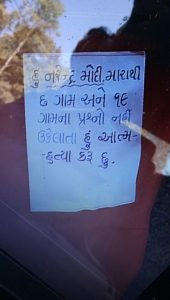 હું નરેન્દ્ર મોદી, મારાથી
૬ ગામ અને ૧૯
ગામના પ્રશ્નો નહી
ઉકેલાતા હું આત્મ-
-હત્યા કરૂ છુ.